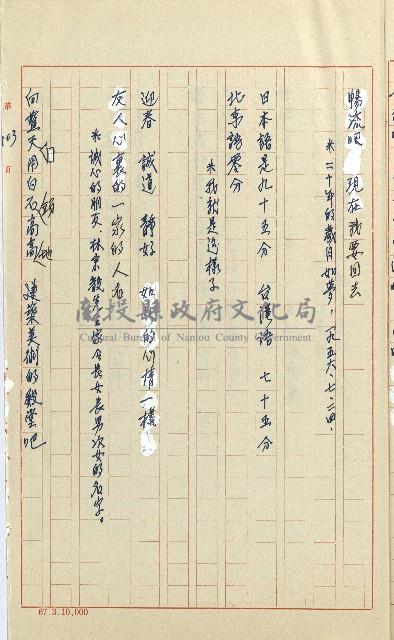 暢流吧 現在我要回去
※二十年的歲月如夢，一九五六、七、二四.
日本語是九十五分 台灣語 七十五分
北京語零分
※我就是這樣子
迎春 誠道 靜好 如的心情一樣
友人心裏的一家的人名
※誠心的朋友、林宗毅先生家今長女長男次女的名字。
向藍天用白石高高地建築美術的殿堂吧
第 203 頁
南投縣政府文化局
Cultural Bureau of Nantou County Government
67.3.10,000